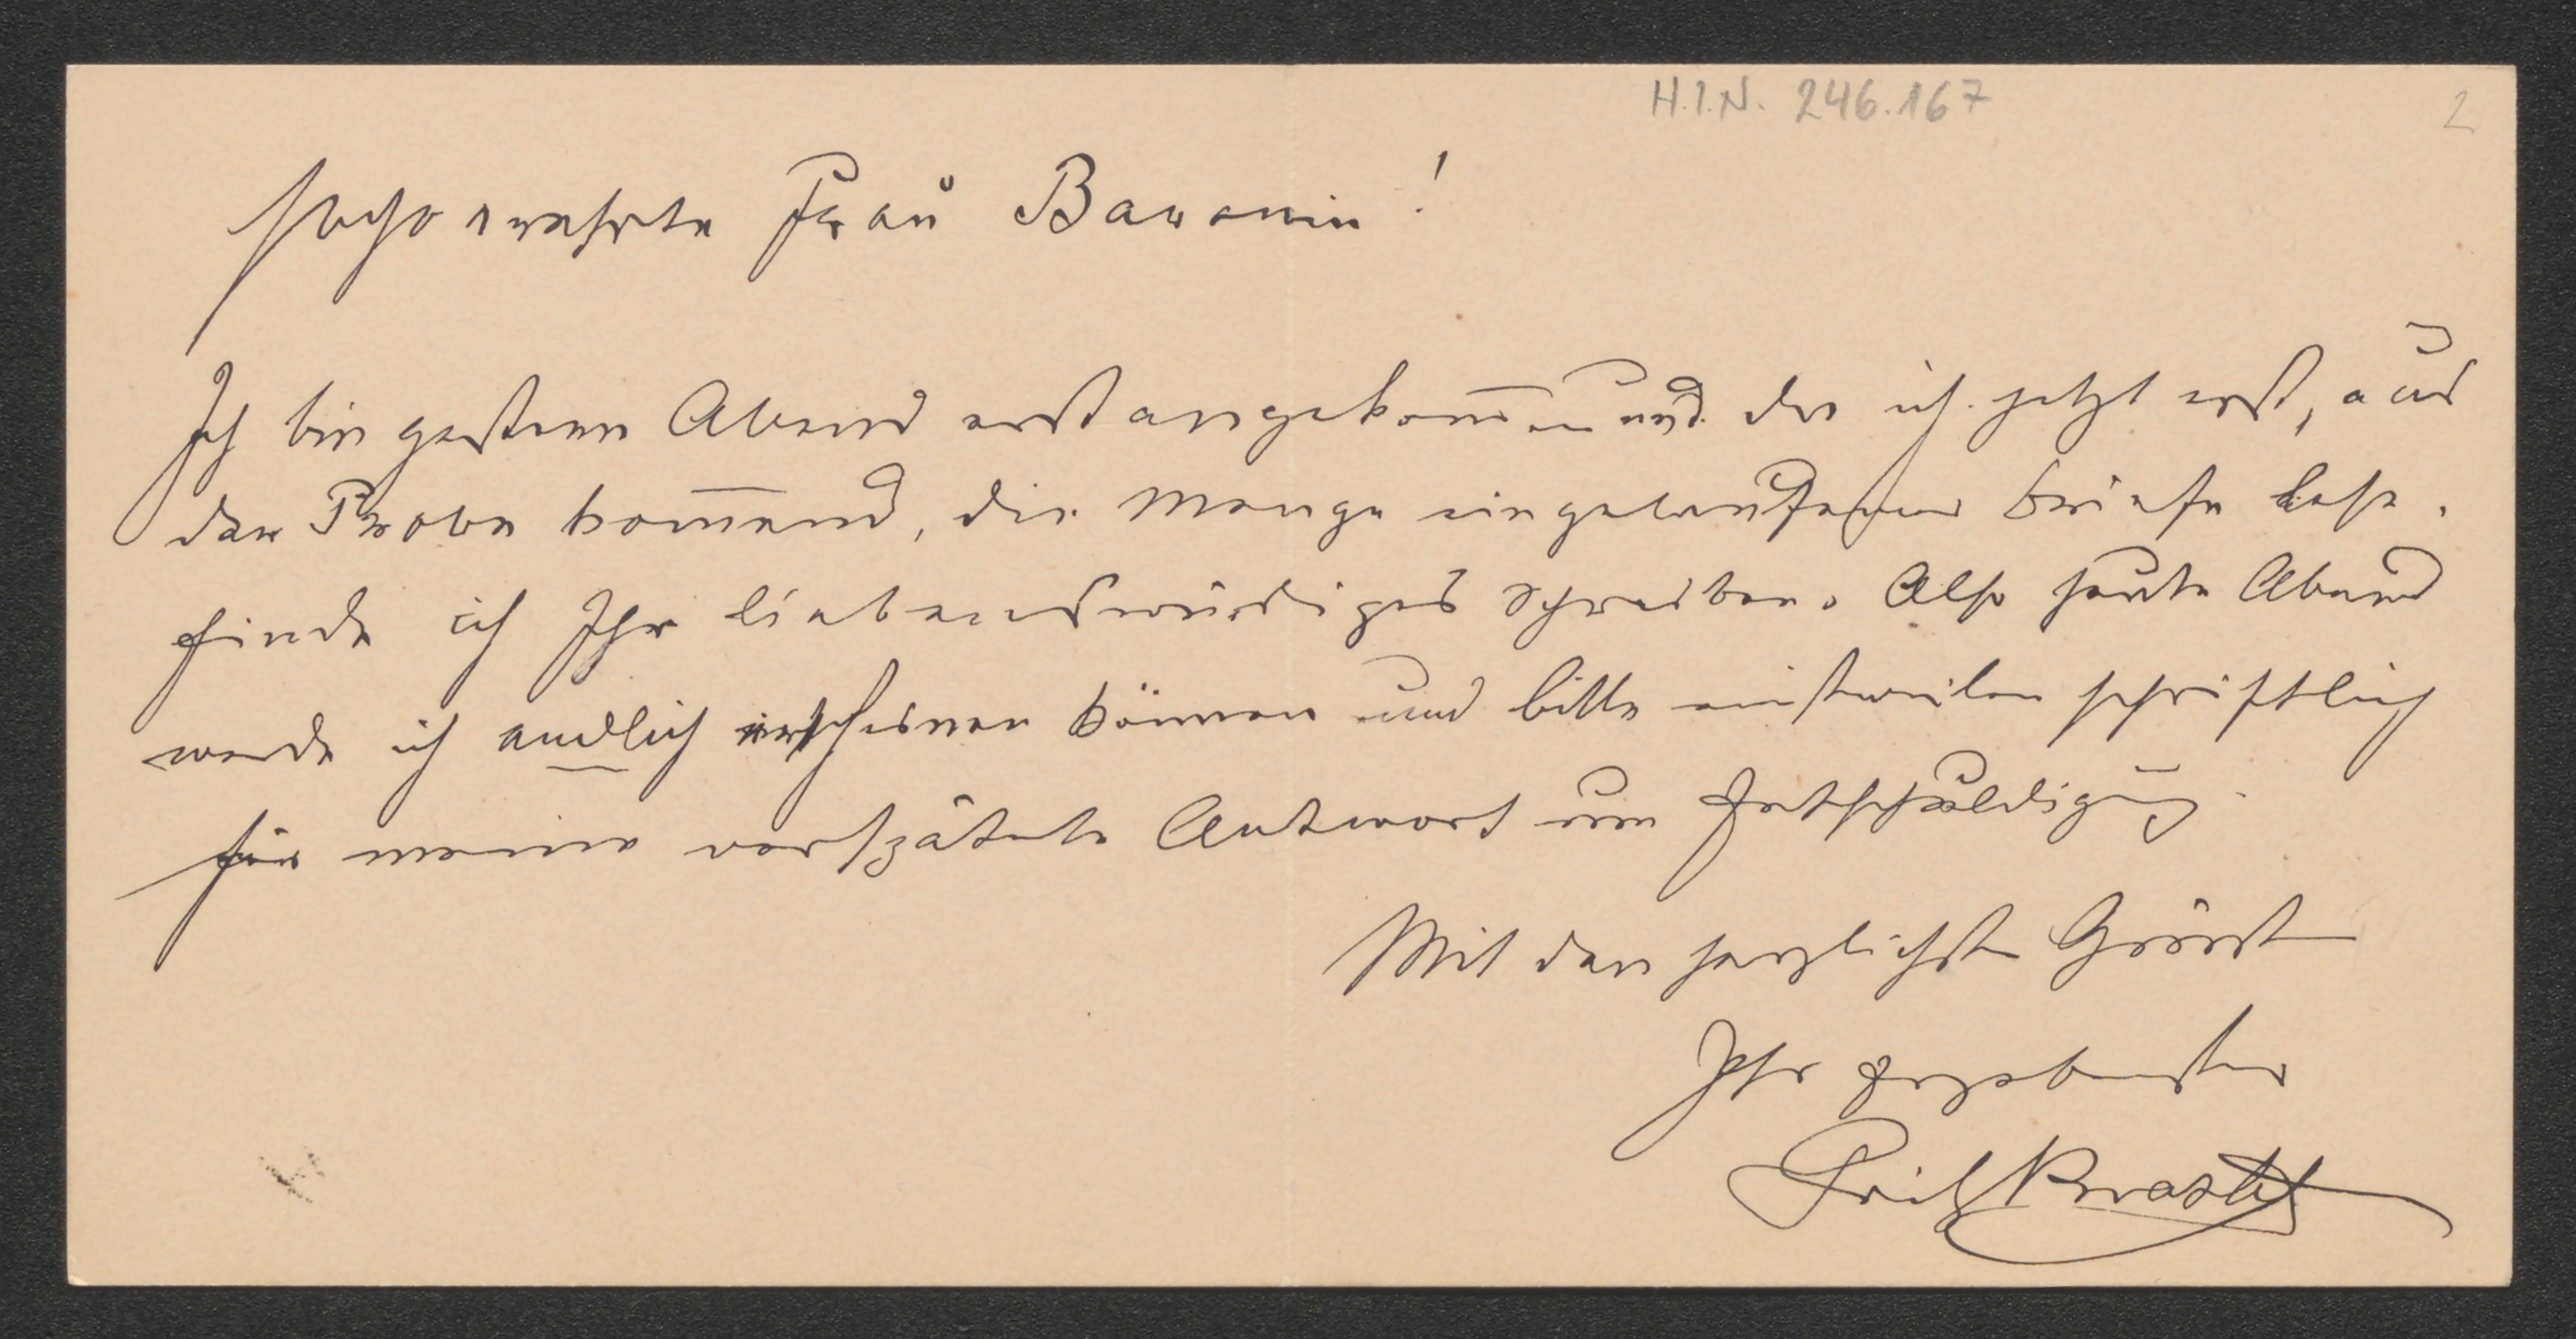 H.I.N. 246.167
2
Hochverehrte Frau Baronin!
Ich bin gestern Abend erst angekom̅en und da ich jetzt erst, aus
der Probe kom̅end, die Menge eingelaufener Briefe lese,
finde ich Ihr liebenswürdiges Schreiben. Also heute Abend
werde ich endlich erscheinen können und bitte einstweilen schriftlich
für meine verspätete Antwort um Entschuldigung.
Mit den herzlichsten Grüßen
Ihr ergebenster
Fritz Krastel